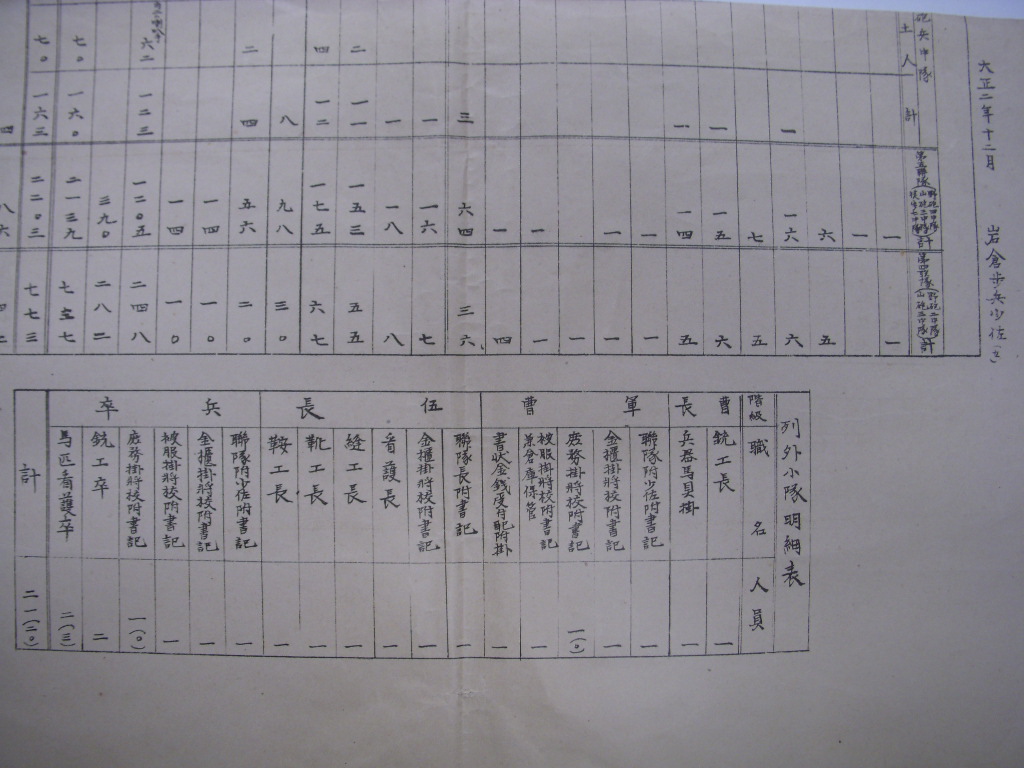 大正二年十二月　岩倉歩兵少佐
砲兵中隊
土人　計　計　計
一　一
一
六　五
一　一六　六
七　五
一　一五　六
一　一四　五
一　一
一　一
一
一　一
一　四
三　六四　三六
一　一六　七
一　一八　八
二　一一　一五三　五五
四　一二　一七五　六七
八　九八　三〇
二　四　五六　二〇
一四　一〇
一四　一〇
六二　一二三　一二〇五　二四八
三九〇　二八二
七〇　一六〇　二一三九　七五七
七〇　一六三　二二〇三　七七三
列外小隊明細表
階級　職名　人員
曹長　銃工長　一
兵器馬具掛　一
軍曹　聯隊附少佐附書記　一
金櫃掛将校附書記　一
庶務掛将校附書記　一(〇)
被服掛将校附書記兼倉庫保管　一
書状金銭配付掛　一
伍長　聯隊長附書記　一
金櫃掛将校附書記　一
看護長　一
縫工長　一
靴工長　一
鞍工長　一
兵卒　聯隊附少佐附書記　一
金櫃掛将校附書記　一
被服掛将校附書記　一
庶務掛将校附書記　一(〇)
銃工卒　二
馬匹看護卒　二(三)
計　二一(二〇)